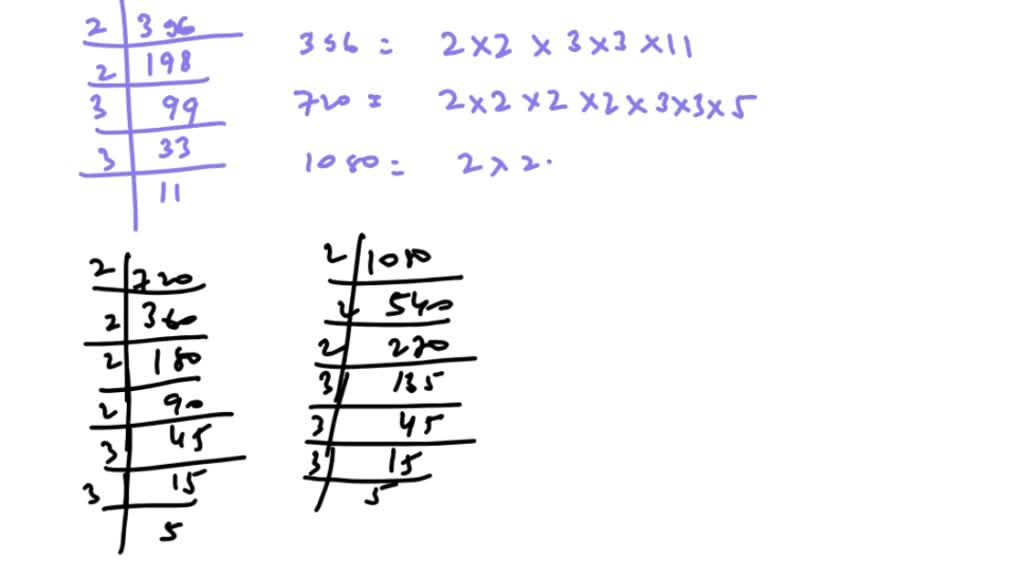 2 396
2 198
3 99
3 33
11
396 = 2 × 2 × 3 × 3 × 11
720 = 2 × 2 × 2 × 2 × 3 × 3 × 5
1080 = 2 × 2 ·
2 720
2 360
2 180
2 90
3 45
3 15
5
2 1080
2 540
2 270
3 135
3 45
3 15
5